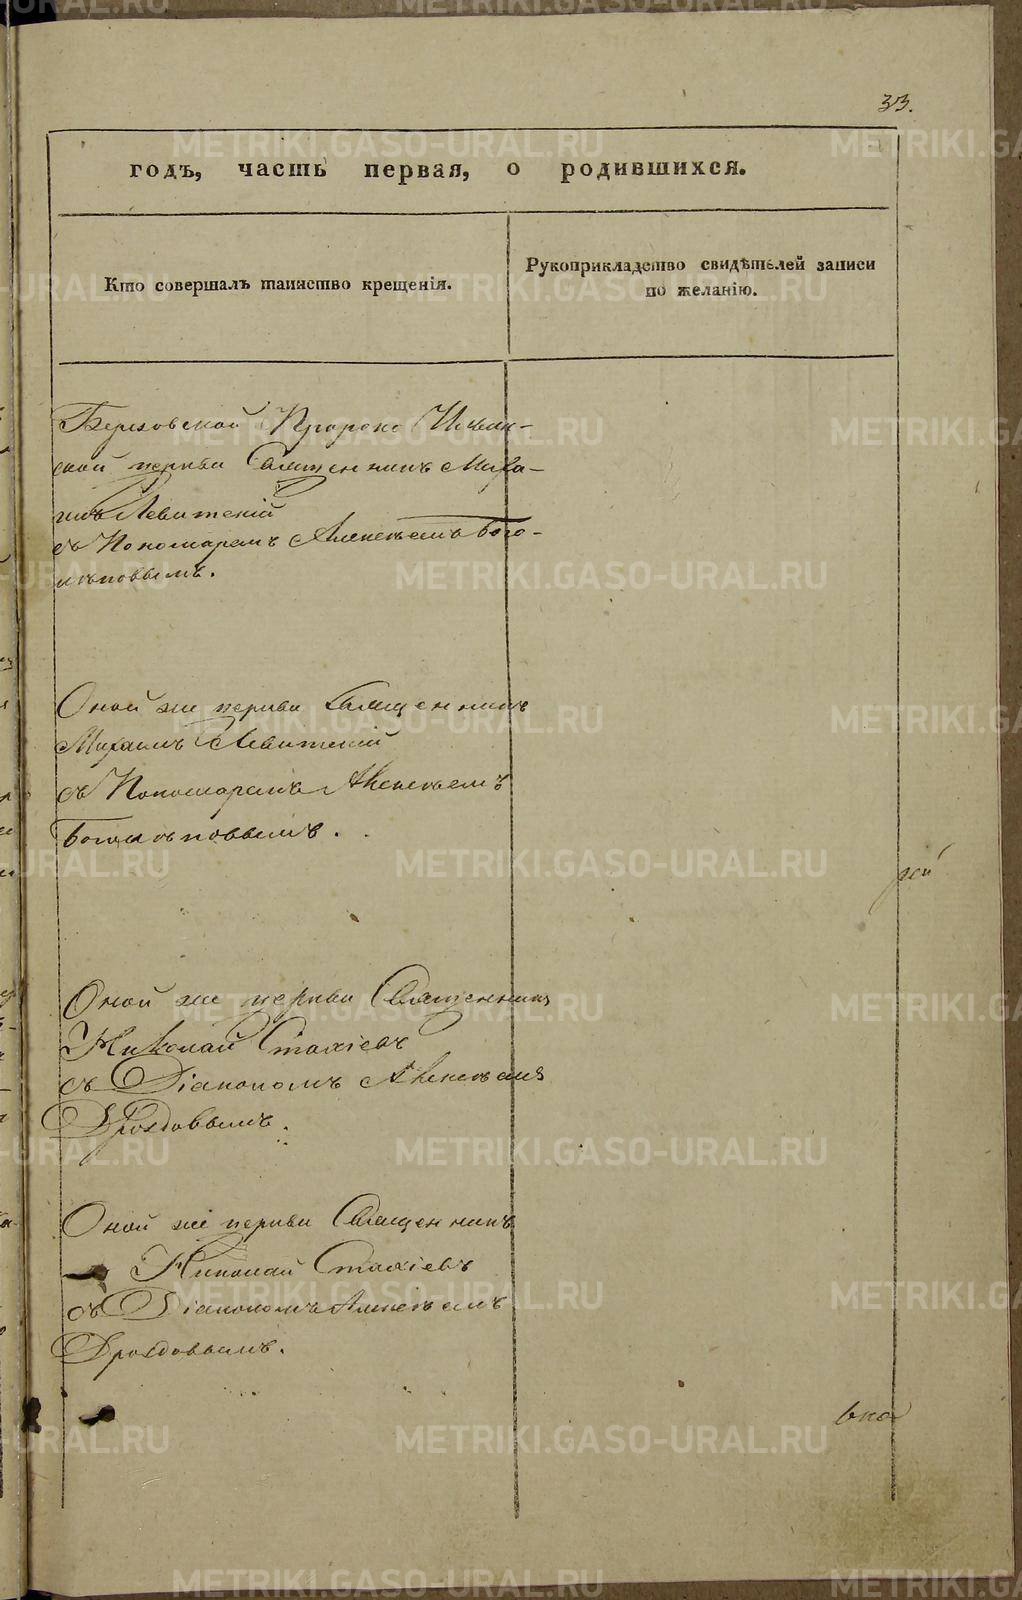 33.
годъ, часть первая, о родившихся.
Кто совершалъ таинство крещенія.
Рукоприкладство свидѣтелей записи
по желанію.
Березовской Пророко Ильин-
ской церкви Священникъ Миха-
илъ Левитскій
съ Пономаремъ Алексѣемъ Бого-
лѣповымъ.
Оной же церкви Священникъ
Михаилъ Левитскій
съ Пономаремъ Алексѣемъ
Боголѣповымъ.
рей
Оной же церкви Священникъ
Николай Стахіевъ
съ Діакономъ Алексѣемъ
Дроздовымъ.
Оной же церкви Священникъ
Николай Стахіевъ
съ Діакономъ Алексѣемъ
Дроздовымъ.
METRIKI.GASO-URAL.RU